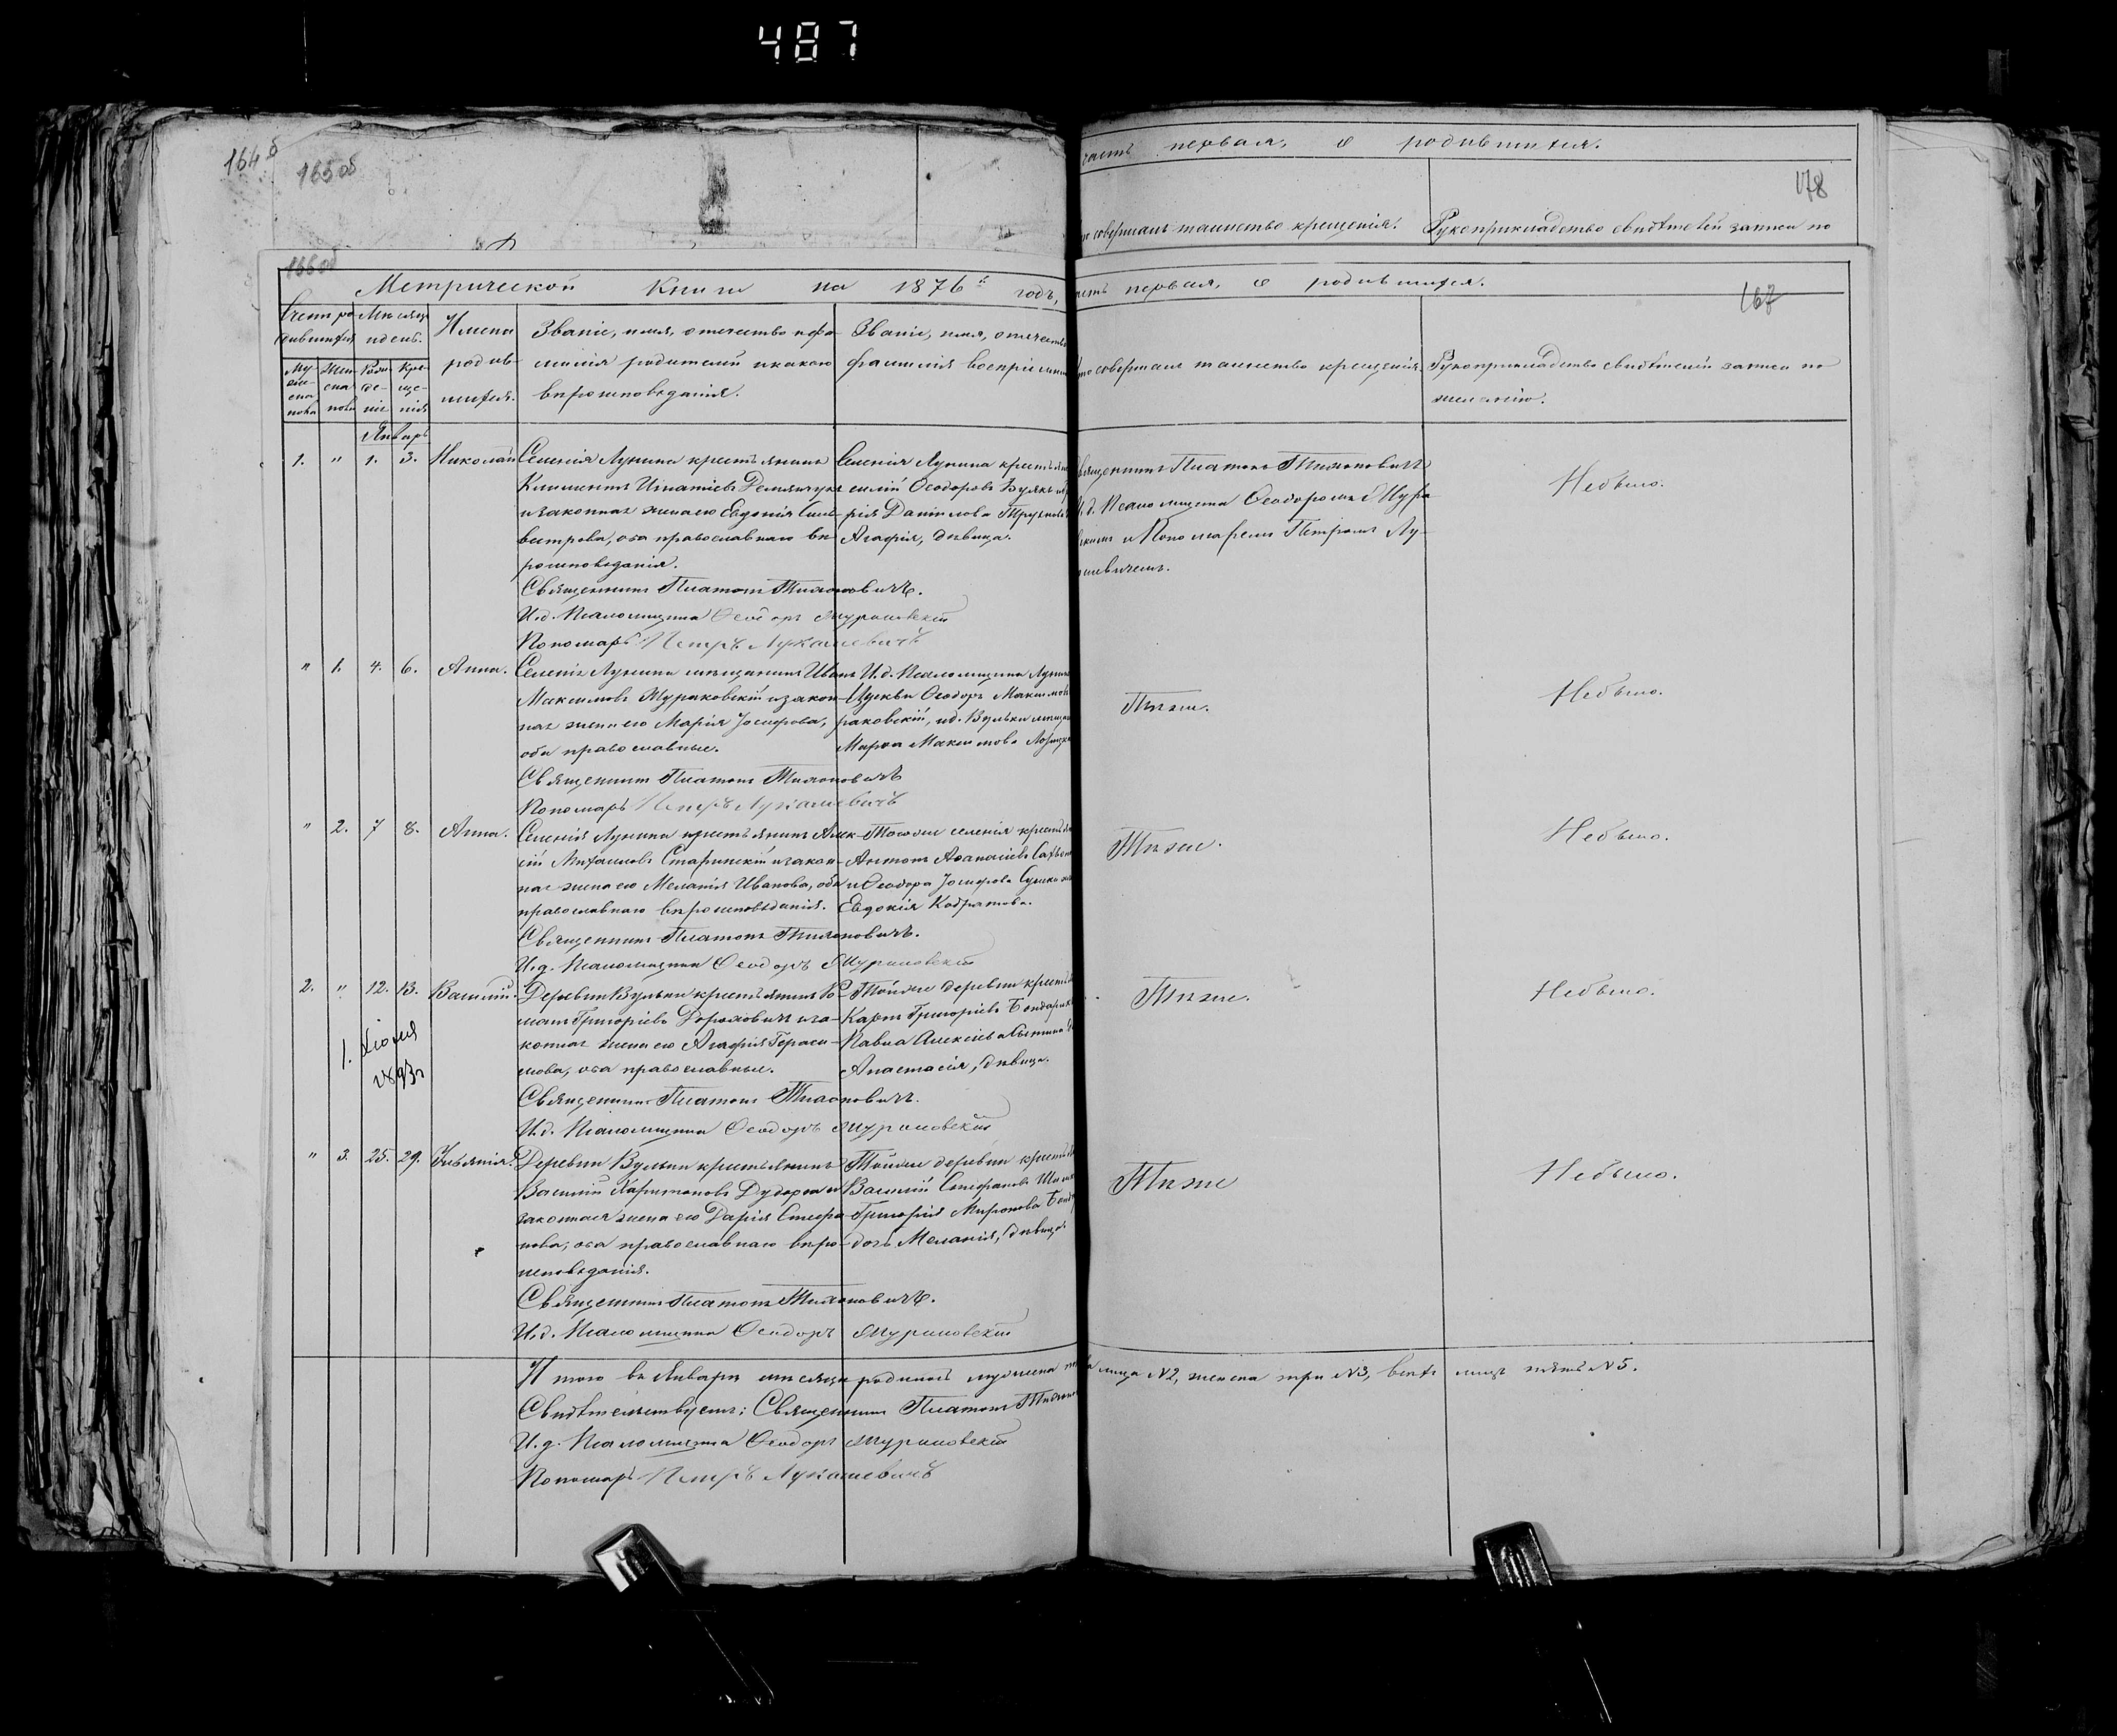 487
164б
165об
часть первая, о родившихся.
178
совершалъ таинство крещенія. Рукоприкладство свидѣтелей записи по
166об
Метрической Книги на 1876й годъ, часть первая, о родившихся.
167
Счетъ ро Мѣсяцъ
дившихся и день.
Имена
родив-
шихся.
Му-
же-
ска
пола
Жен-
ска
пола
Рож-
де-
нія
Кре-
ще-
нія
Званіе, имя, отчество и фа-
милія родителей и какого
вѣроисповѣданія.
Званіе, имя, отчество
фамилія воспріемни
кто совершалъ таинство крещенія.
Рукоприкладство свидѣтелей записи по
желанію.
Январь
1. " 1. 3. Николай
Селенія Лунина крестьянинъ
Климентъ Игнатіевъ Демянчукъ
и законная жена его Евдокія Силь-
вестрова, оба православнаго вѣ-
роисповѣданія.
Священникъ Платонъ Тихоновичъ.
И.д. Псаломщика Ѳеодоръ Мураховскій
Пономаръ Петръ Лукашевичъ
Селенія Лунина крестьян
силій Ѳеодоровъ Вуякъ и
рія Даніилова
Агафія, дѣвица.
Священникъ Платонъ Тихоновичъ
И.д. Псаломщика Ѳеодоромъ Мура
скимъ и Пономаремъ Петромъ Лу-
кашевичемъ.
Небыло.
" 1. 4. 6. Анна.
Селенія Лунина мѣщанинъ Иванъ
Максимовъ Мураховскій и закон-
ная жена его Марія Іосифова,
оба православные.
Священникъ Платонъ Тихоновичъ
Пономаръ Петръ Лукашевичъ
И.д. Псаломщика Лунин
Церкви Ѳеодоръ Максимов
раховскій, и д. Вульки мѣщан
Марка Максимова
Тѣже.
Небыло.
" 2. 7 8. Анна.
Селенія Лунина крестьянинъ Алек-
сій Михаиловъ Старинскій и закон-
ная жена его Меланія Иванова, оба
православнаго вѣроисповѣданія.
Священникъ Платонъ Тихоновичъ.
И.д. Псаломщика Ѳеодоръ Мураховскій
Тогоже селенія крестьян
Антонъ Аѳанасіевъ
и Ѳеодора Іосифова
Евдокія Кодратова.
Тѣже.
Небыло.
2. " 12. 13. Василій.
1. Іюля
1893г
Деревни Вульки крестьянинъ Ро-
манъ Григоріевъ Дорожовичъ и за-
конная жена его Агафія Гераси-
мова, оба православные.
Священникъ Платонъ Тихоновичъ.
И.д. Псаломщика Ѳеодоръ Мураховскій
Тойже деревни крестья
Карпъ Григоріевъ Бондарик
Павла Алексіева
Анастасія, дѣвица.
Тѣже.
Небыло.
" 3. 25. 29. Іуліянія.
Деревни Вульки крестьянинъ
Василій Харитоновъ Дударка и
законная жена его Дарія Стефа-
нова, оба православнаго вѣро-
исповѣданія.
Священникъ Платонъ Тихоновичъ.
И.д. Псаломщика Ѳеодоръ Мураховскій
Тойже деревни крестья
Василій Стефановъ
Григорія Миронова Бонд
дочь Меланія, дѣвица
Тѣже
Небыло.
Итого въ Январѣ мѣсяцѣ родилось мужеска лица №2, женска три №3, всѣхъ лицъ пять №5.
Свидѣтельствуемъ: Священникъ Платонъ Тихонов
И.д. Псаломщика Ѳеодоръ Мураховскій
Пономаръ Петръ Лукашевичъ